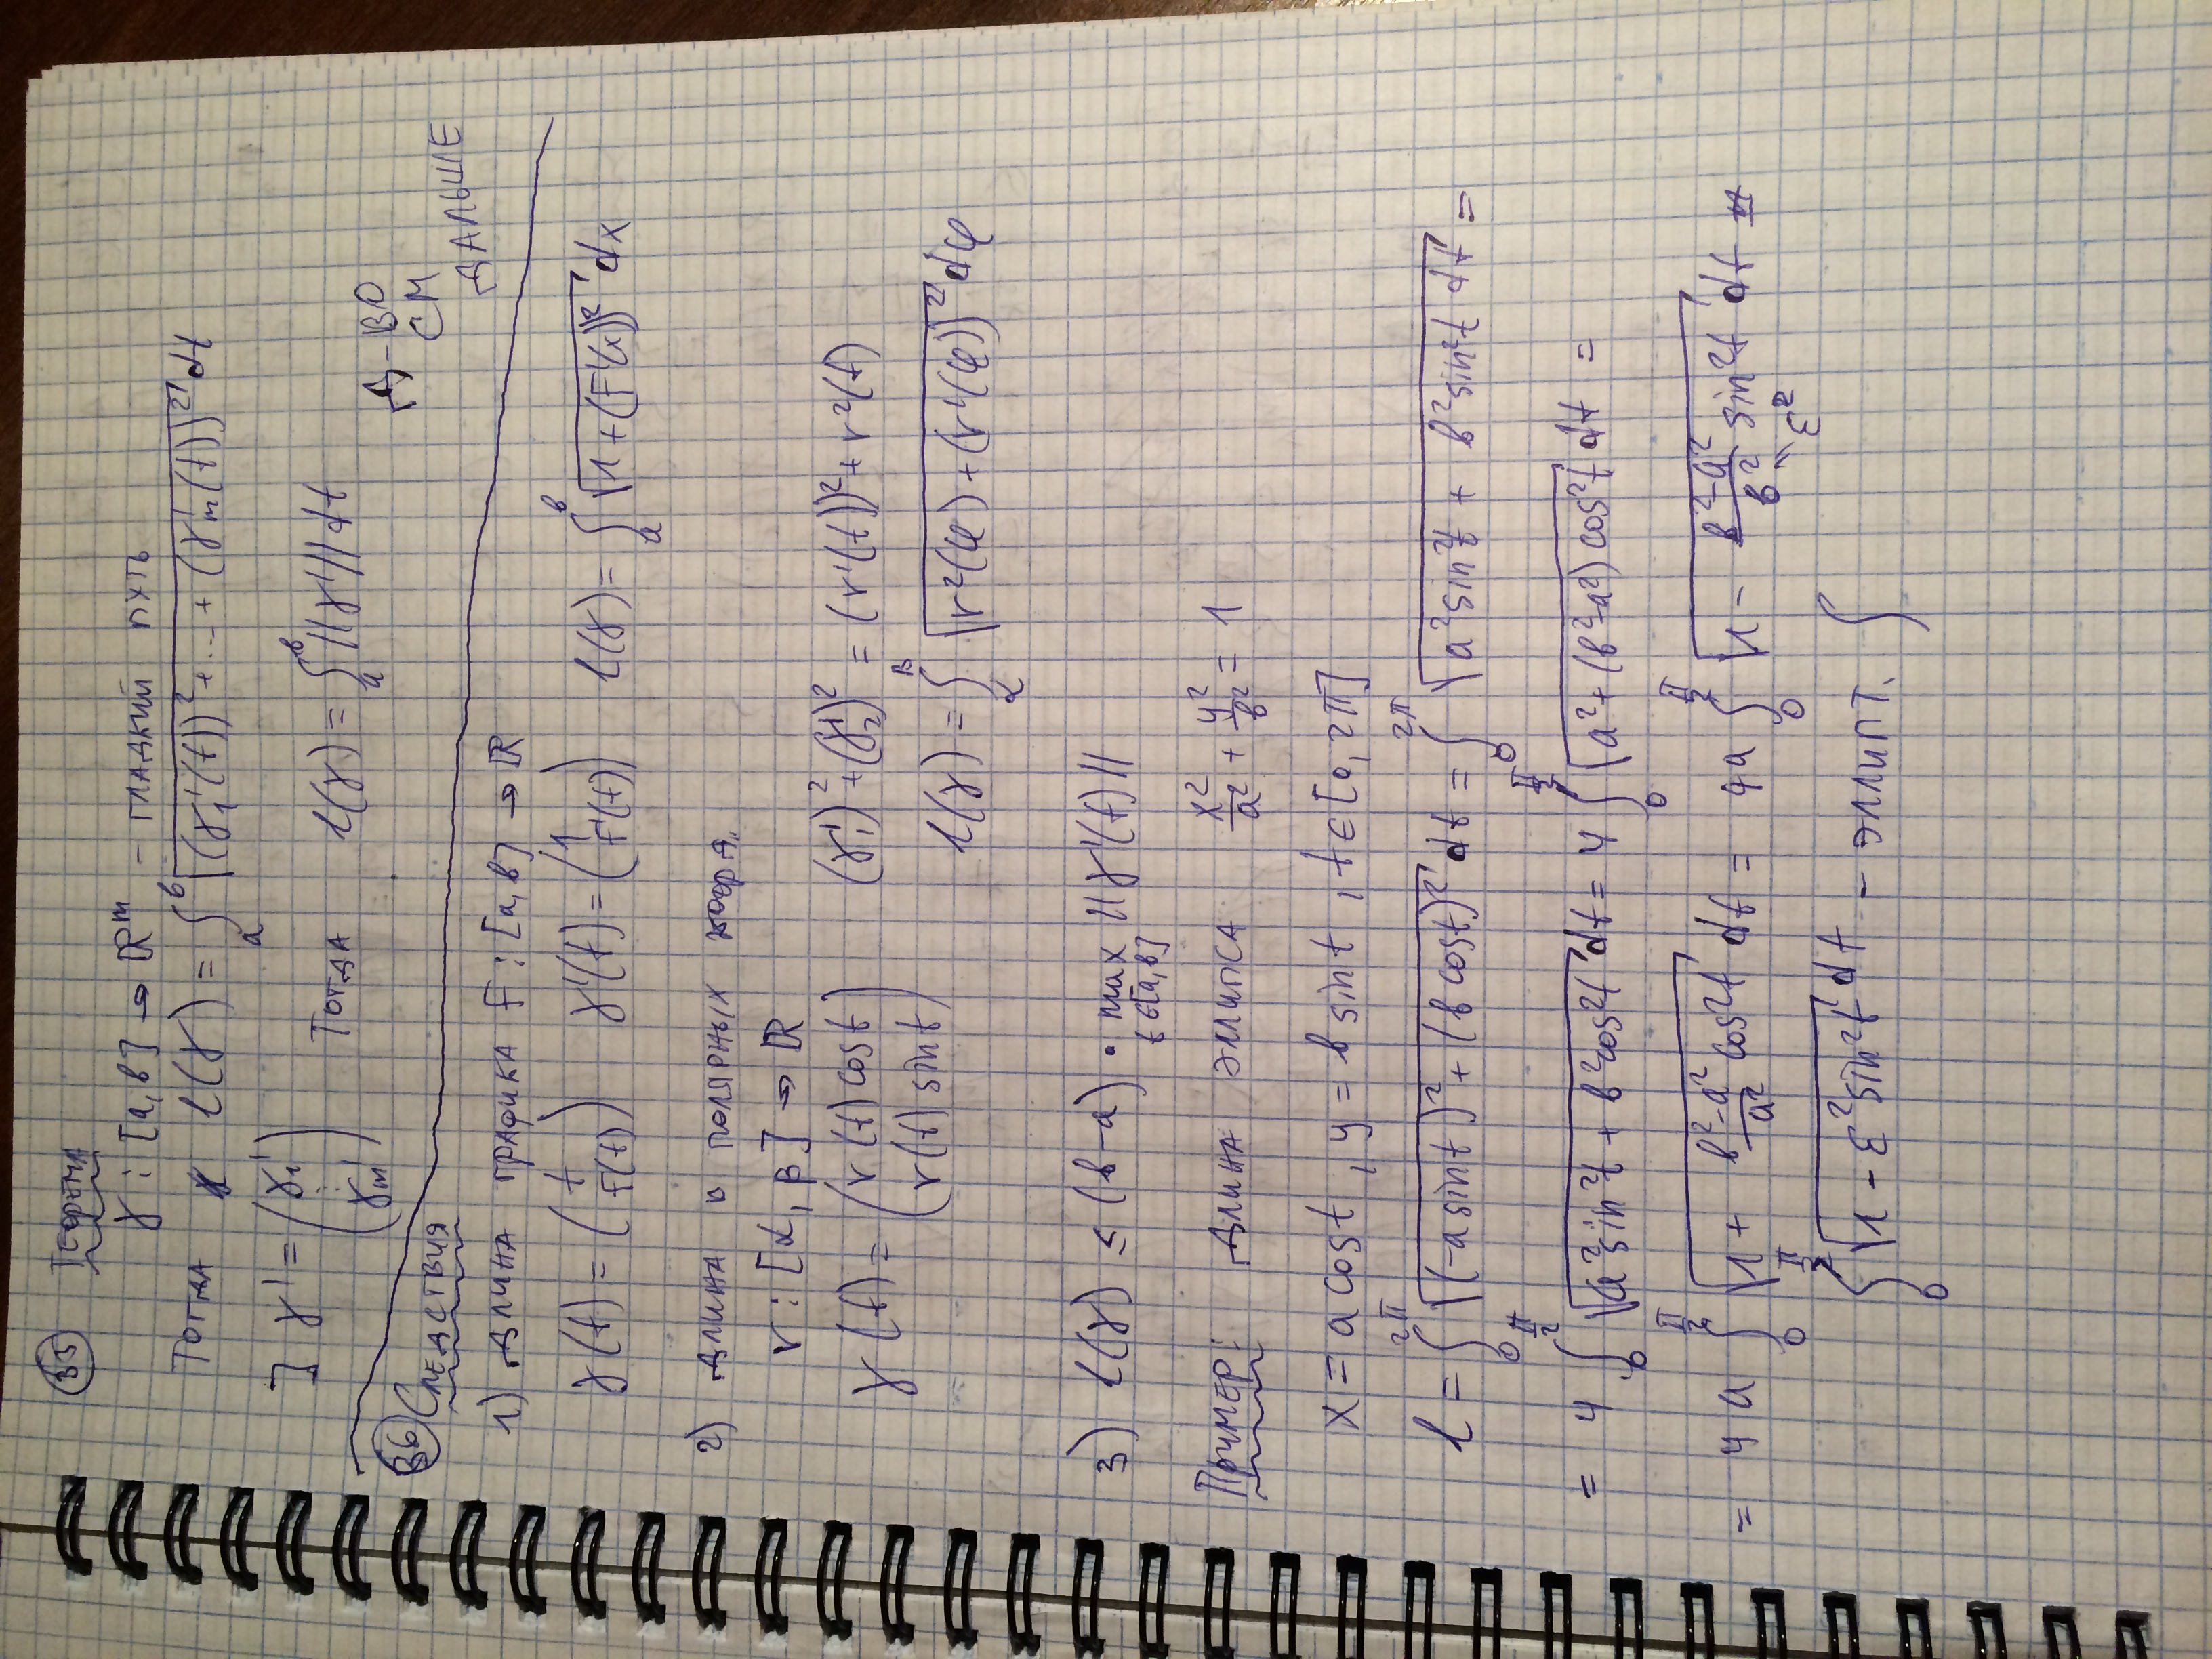 35 Теорема
γ : [a, b] → ℝᵐ – гладкий путь
Тогда l(γ) = ∫ₐᵇ √((γ₁'(t))² + ... + (γₘ'(t))²) dt
] γ' = (γ₁' ⋮ γₘ') Тогда l(γ) = ∫ₐᵇ ||γ'|| dt
Д-во
см
дальше
36 Следствия
1) Длина графика f : [a, b] → ℝ
γ(t) = (t f(t)) γ'(t) = (1 f'(t)) l(γ) = ∫ₐᵇ √(1 + (f'(x))²) dx
2) Длина в полярных коорд.
r : [α, β] → ℝ
γ(t) = (r(t) cos t r(t) sin t) (γ₁')² + (γ₂')² = (r'(t))² + r²(t)
l(γ) = ∫_α^β √(r²(φ) + (r'(φ))²) dφ
3) l(γ) ≤ (b-a) · max_{t∈[a,b]} ||γ'(t)||
Пример: Длина эллипса x²/a² + y²/b² = 1
x = a cos t , y = b sin t , t ∈ [0, 2π]
l = ∫₀^{2π} √((-a sin t)² + (b cos t)²) dt = ∫₀^{2π} √(a² sin² t + b² sin² t dt) =
= 4 ∫₀^{π/2} √(a² sin² t + b² cos² t) dt = 4 ∫₀^{π/2} √(a² + (b²-a²) cos² t) dt =
= 4a ∫₀^{π/2} √(1 + (b²-a²)/a² cos² t) dt = 4a ∫₀^{π/2} √(1 - (b²-a²)/b² sin² t) dt
ε²
∫₀^{π/2} √(1 - ε² sin² t) dt – эллипт. ∫